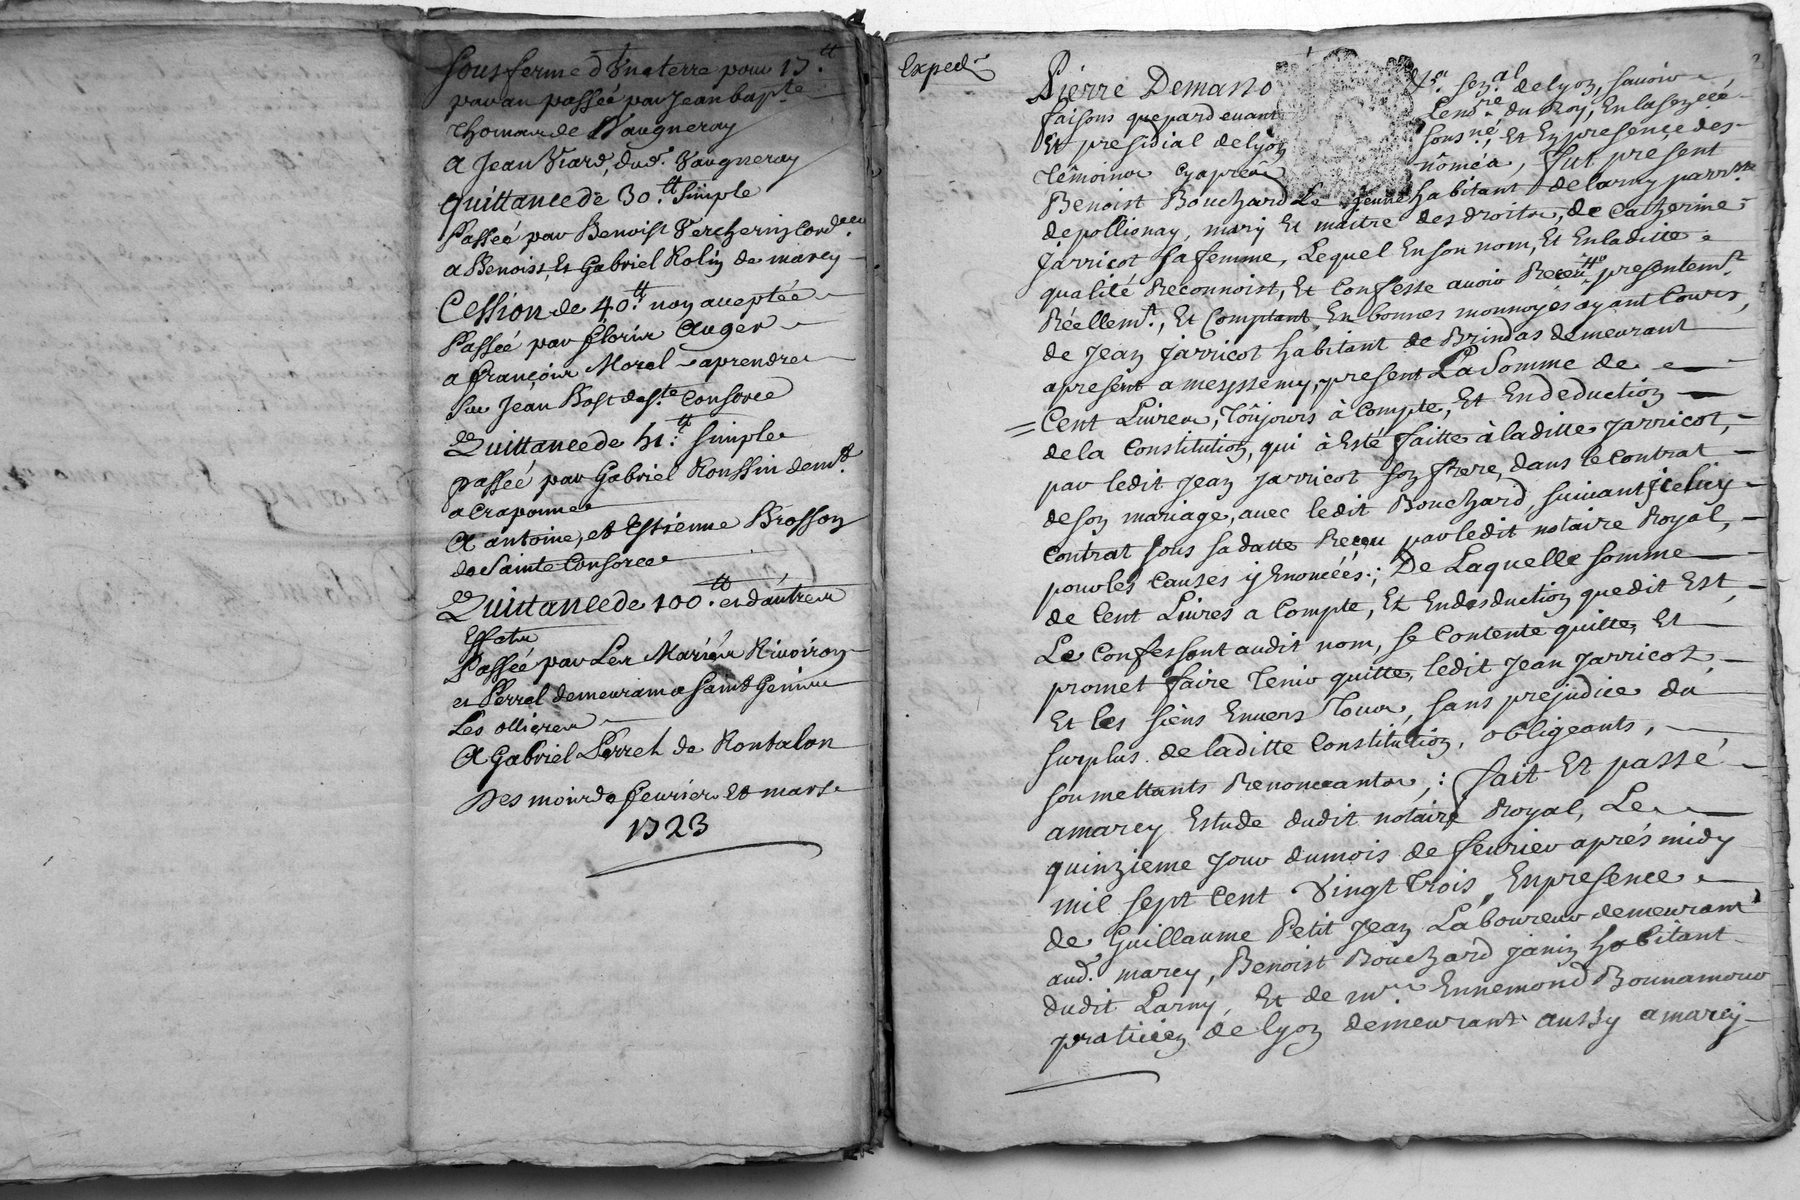 Sousferme d'Une terre pour 15.tt
par an passée par Jean bap.te
Thomas de Vaugneray
a Jean Viard, dud.t Vaugneray
Quittance de 30.tt simple
Passée par Benoist Vercherin Cord.
a Benoist, Et Gabriel Rolin de marcy
Cession de 40.tt non acceptée
Passée par Floris Auger
a françois Morel aprendre
Sur Jean Bost de s.te Consorce
Quittance de 41.tt simple
passée par Gabriel Roussin dem.t
a craponne
A antoine, et Estienne Brosson
de Sainte Consorce
Quittance de 100.tt et d'autres
Effets
Passée par Les Mariés Rivoiron
et Perret demeurant a Saint Genis
Les ollieres
A Gabriel Perret de Rontalon
Des mois de fevrier Et mars
1723
Exped.
2
Pierre Demasso sen.al de lyon, savoir
faisons que pardevant Le no.re du Roy, En la sen.cée
Et presidial de lyon sous.né, Et En presence des
Témoins Cyaprès nômés, fut present
Benoist Bouchard Le Jeune habitant de larny parr.sse
de pollionay, mary Et maitre des droits, de Catherine
Jarricot sa femme, Lequel En son nom, Et En laditte
qualité Reconnoist, Et Confesse avoir Receu presentem.t
Réellem.t, Et Comptant, En bonnes monnoyes ayant Cours,
de Jean Jarricot habitant de Brindas demeurant
apresent a meyssemy, present La Somme de
Cent Livres, Toûjours à compte, Et En deduction
de la Constitution, qui à Esté faitte à laditte Jarricot,
par ledit Jean Jarricot son frere, dans le Contrat
de son mariage, avec ledit Bouchard, suivant Icelluy
Contrat sous sa datte Receu par ledit notaire Royal,
pour les Causes y Enoncées; De Laquelle somme
de Cent Livres a Compte, Et En deduction que dit Est,
Le Confessant audit nom, se Contente quitte, Et
promet faire Tenir quitte, ledit Jean Jarricot,
Et les siens Envers Tous, sans prejudice du
surplus de laditte Constitution, obligeants,
soumettants Renonceants; : fait Et passé
a marcy Estude dudit notaire Royal, Le
quinzieme Jour du mois de fevrier aprés midy
mil sept Cent Vingt Trois, En presence
de Guillaume Petit Jean Laboureur demeurant
aud.t marcy, Benoist Bouchard Janin habitant
dudit Larny, Et de m.re Ennemond Bonnamour
praticien de lyon demeurant aussy a marcy